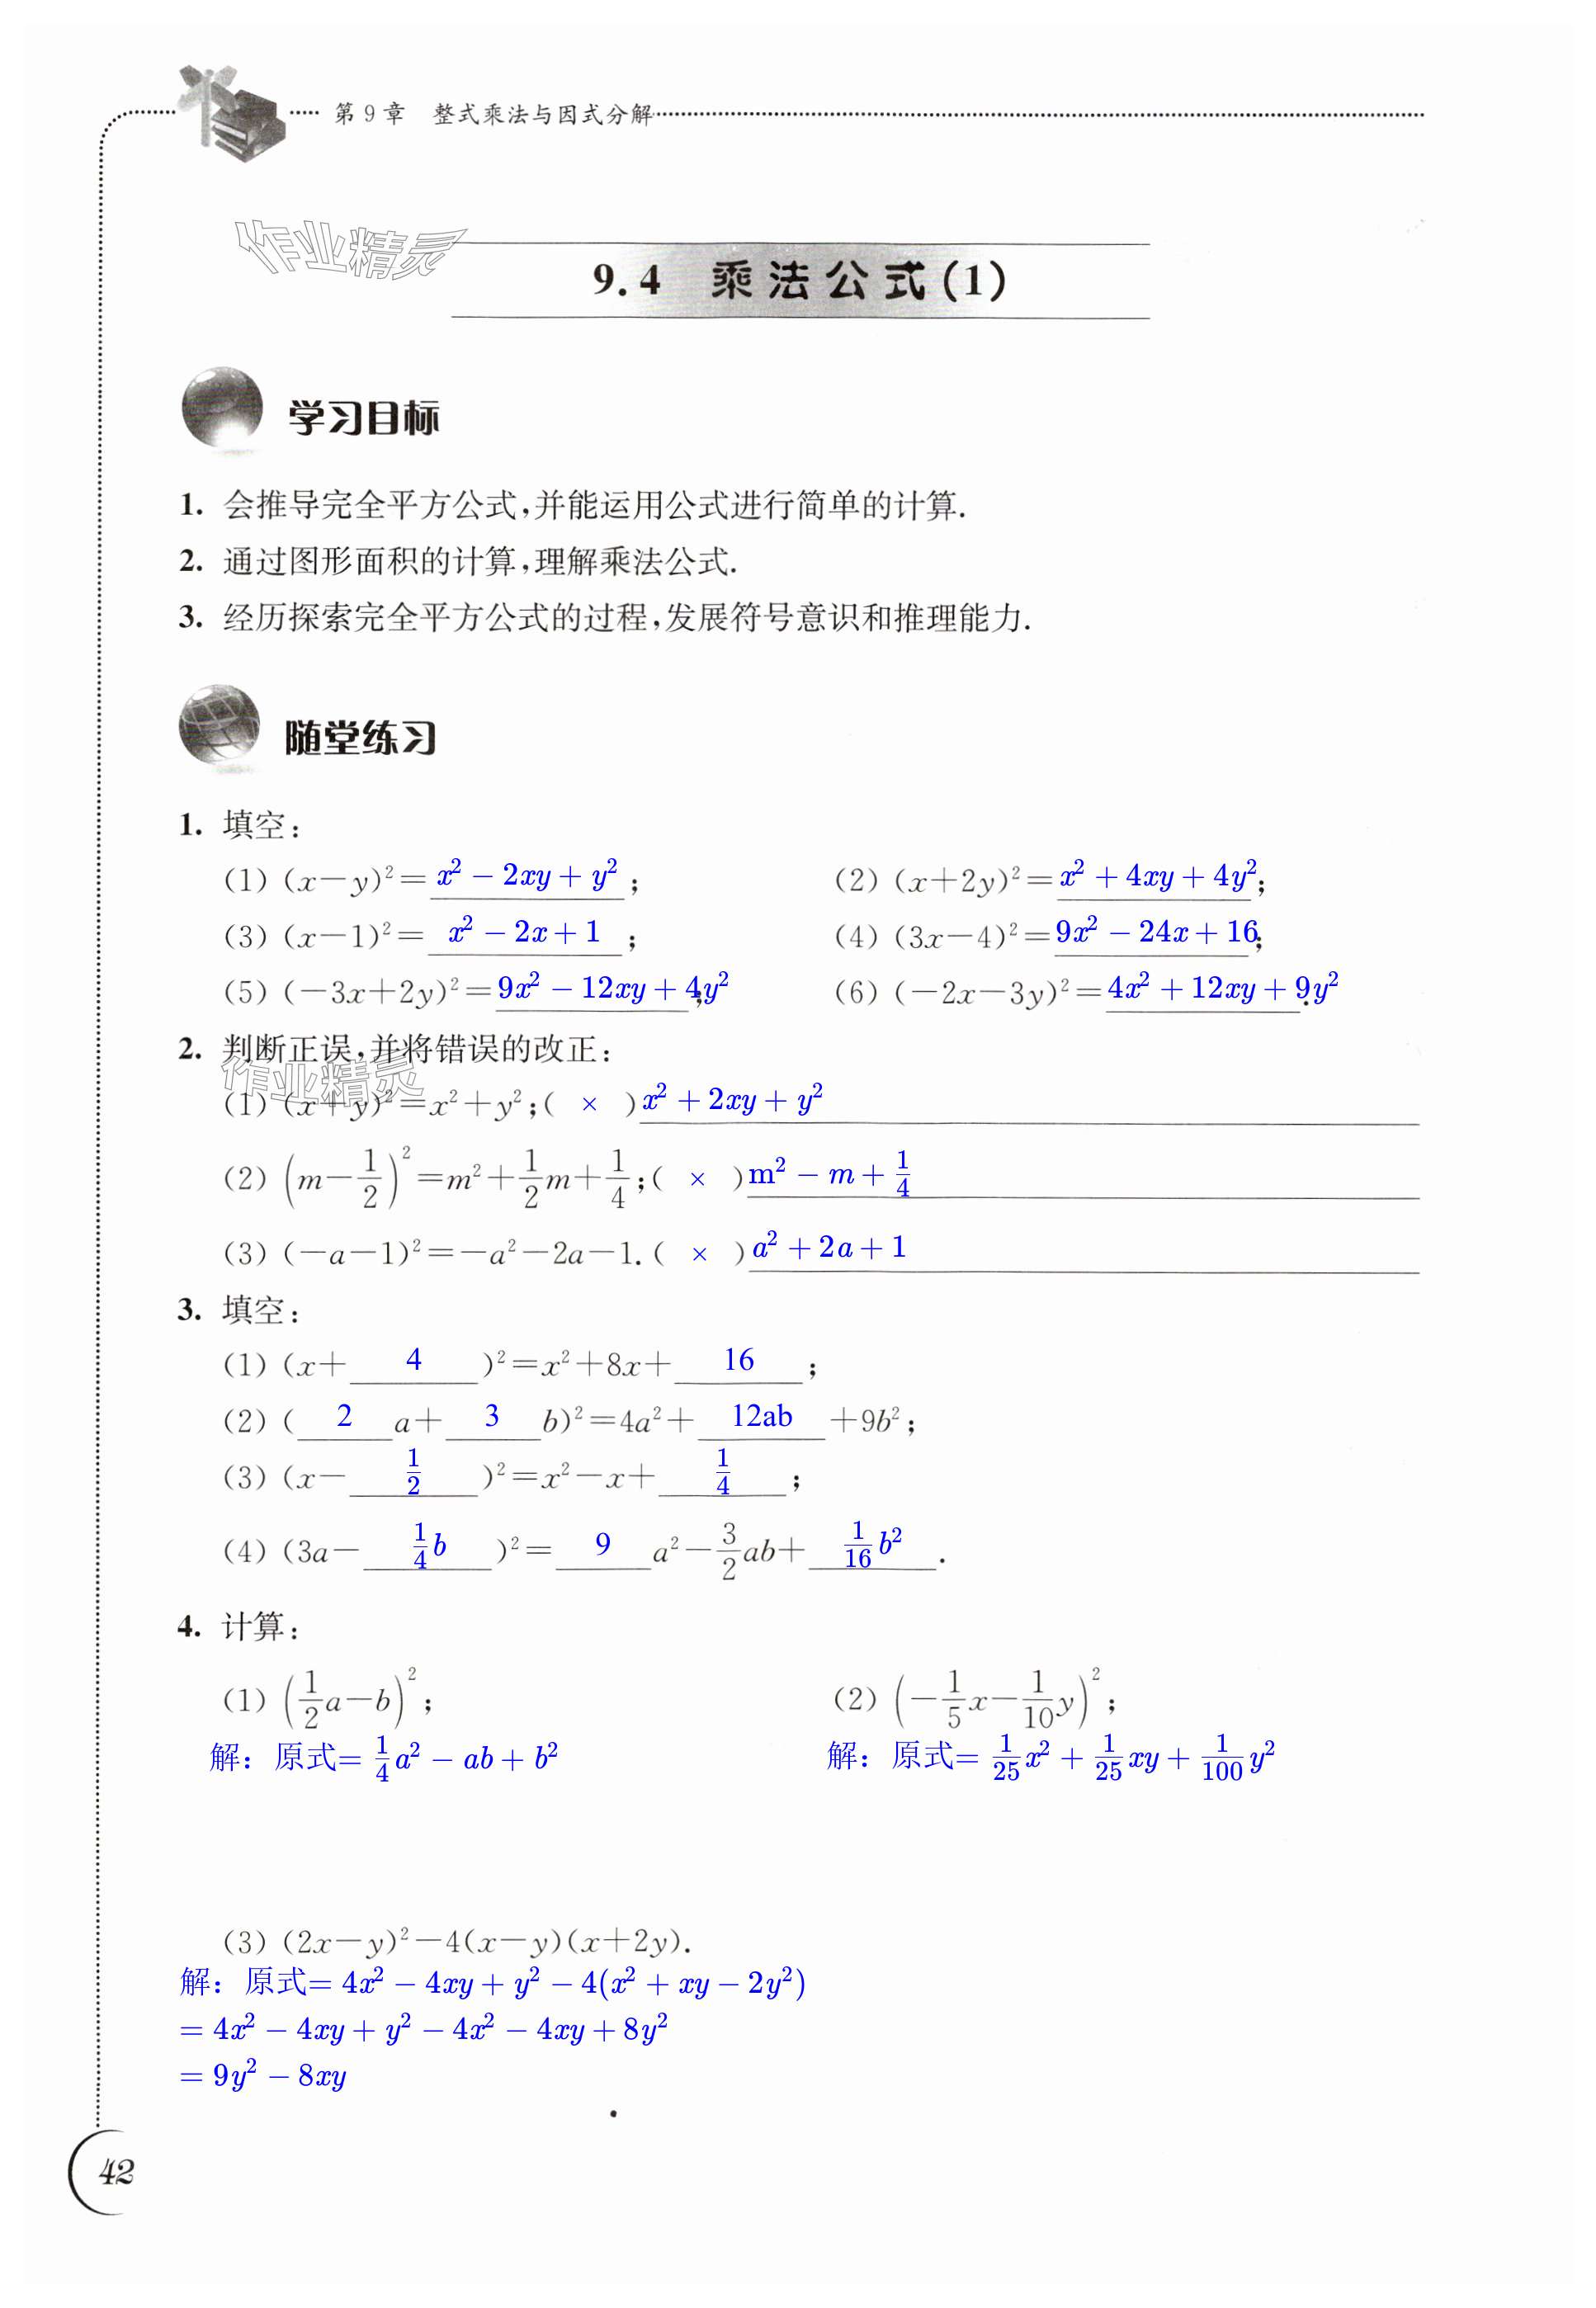 第9章 整式乘法与因式分解
作业精灵
9.4 乘法公式(1)
学习目标
1. 会推导完全平方公式,并能运用公式进行简单的计算.
2. 通过图形面积的计算,理解乘法公式.
3. 经历探索完全平方公式的过程,发展符号意识和推理能力.
随堂练习
1. 填空:
(1) (x-y)²= x² - 2xy + y² ; (2) (x+2y)²= x² + 4xy + 4y² ;
(3) (x-1)²= x² - 2x + 1 ; (4) (3x-4)²= 9x² - 24x + 16 ;
(5) (-3x+2y)²= 9x² - 12xy + 4y² ; (6) (-2x-3y)²= 4x² + 12xy + 9y² .
2. 判断正误,并将错误的改正:
作业精灵
(1) (x+y)²=x²+y²;( × ) x² + 2xy + y²
(2) (m-1/2)²=m²+1/2m+1/4;( × ) m² - m + 1/4
(3) (-a-1)²=-a²-2a-1.( × ) a² + 2a + 1
3. 填空:
(1) (x+ 4 )²=x²+8x+ 16 ;
(2) ( 2 a+ 3 b)²=4a²+ 12ab +9b²;
(3) (x- 1/2 )²=x²-x+ 1/4 ;
(4) (3a- 1/4 b )²= 9 a²-3/2ab+ 1/16 b² .
4. 计算:
(1) (1/2a-b)²; (2) (-1/5x-1/10y)²;
解：原式= 1/4 a² - ab + b² 解：原式= 1/25 x² + 1/25 xy + 1/100 y²
(3) (2x-y)²-4(x-y)(x+2y).
解：原式= 4x² - 4xy + y² - 4(x² + xy - 2y²)
= 4x² - 4xy + y² - 4x² - 4xy + 8y²
= 9y² - 8xy
42